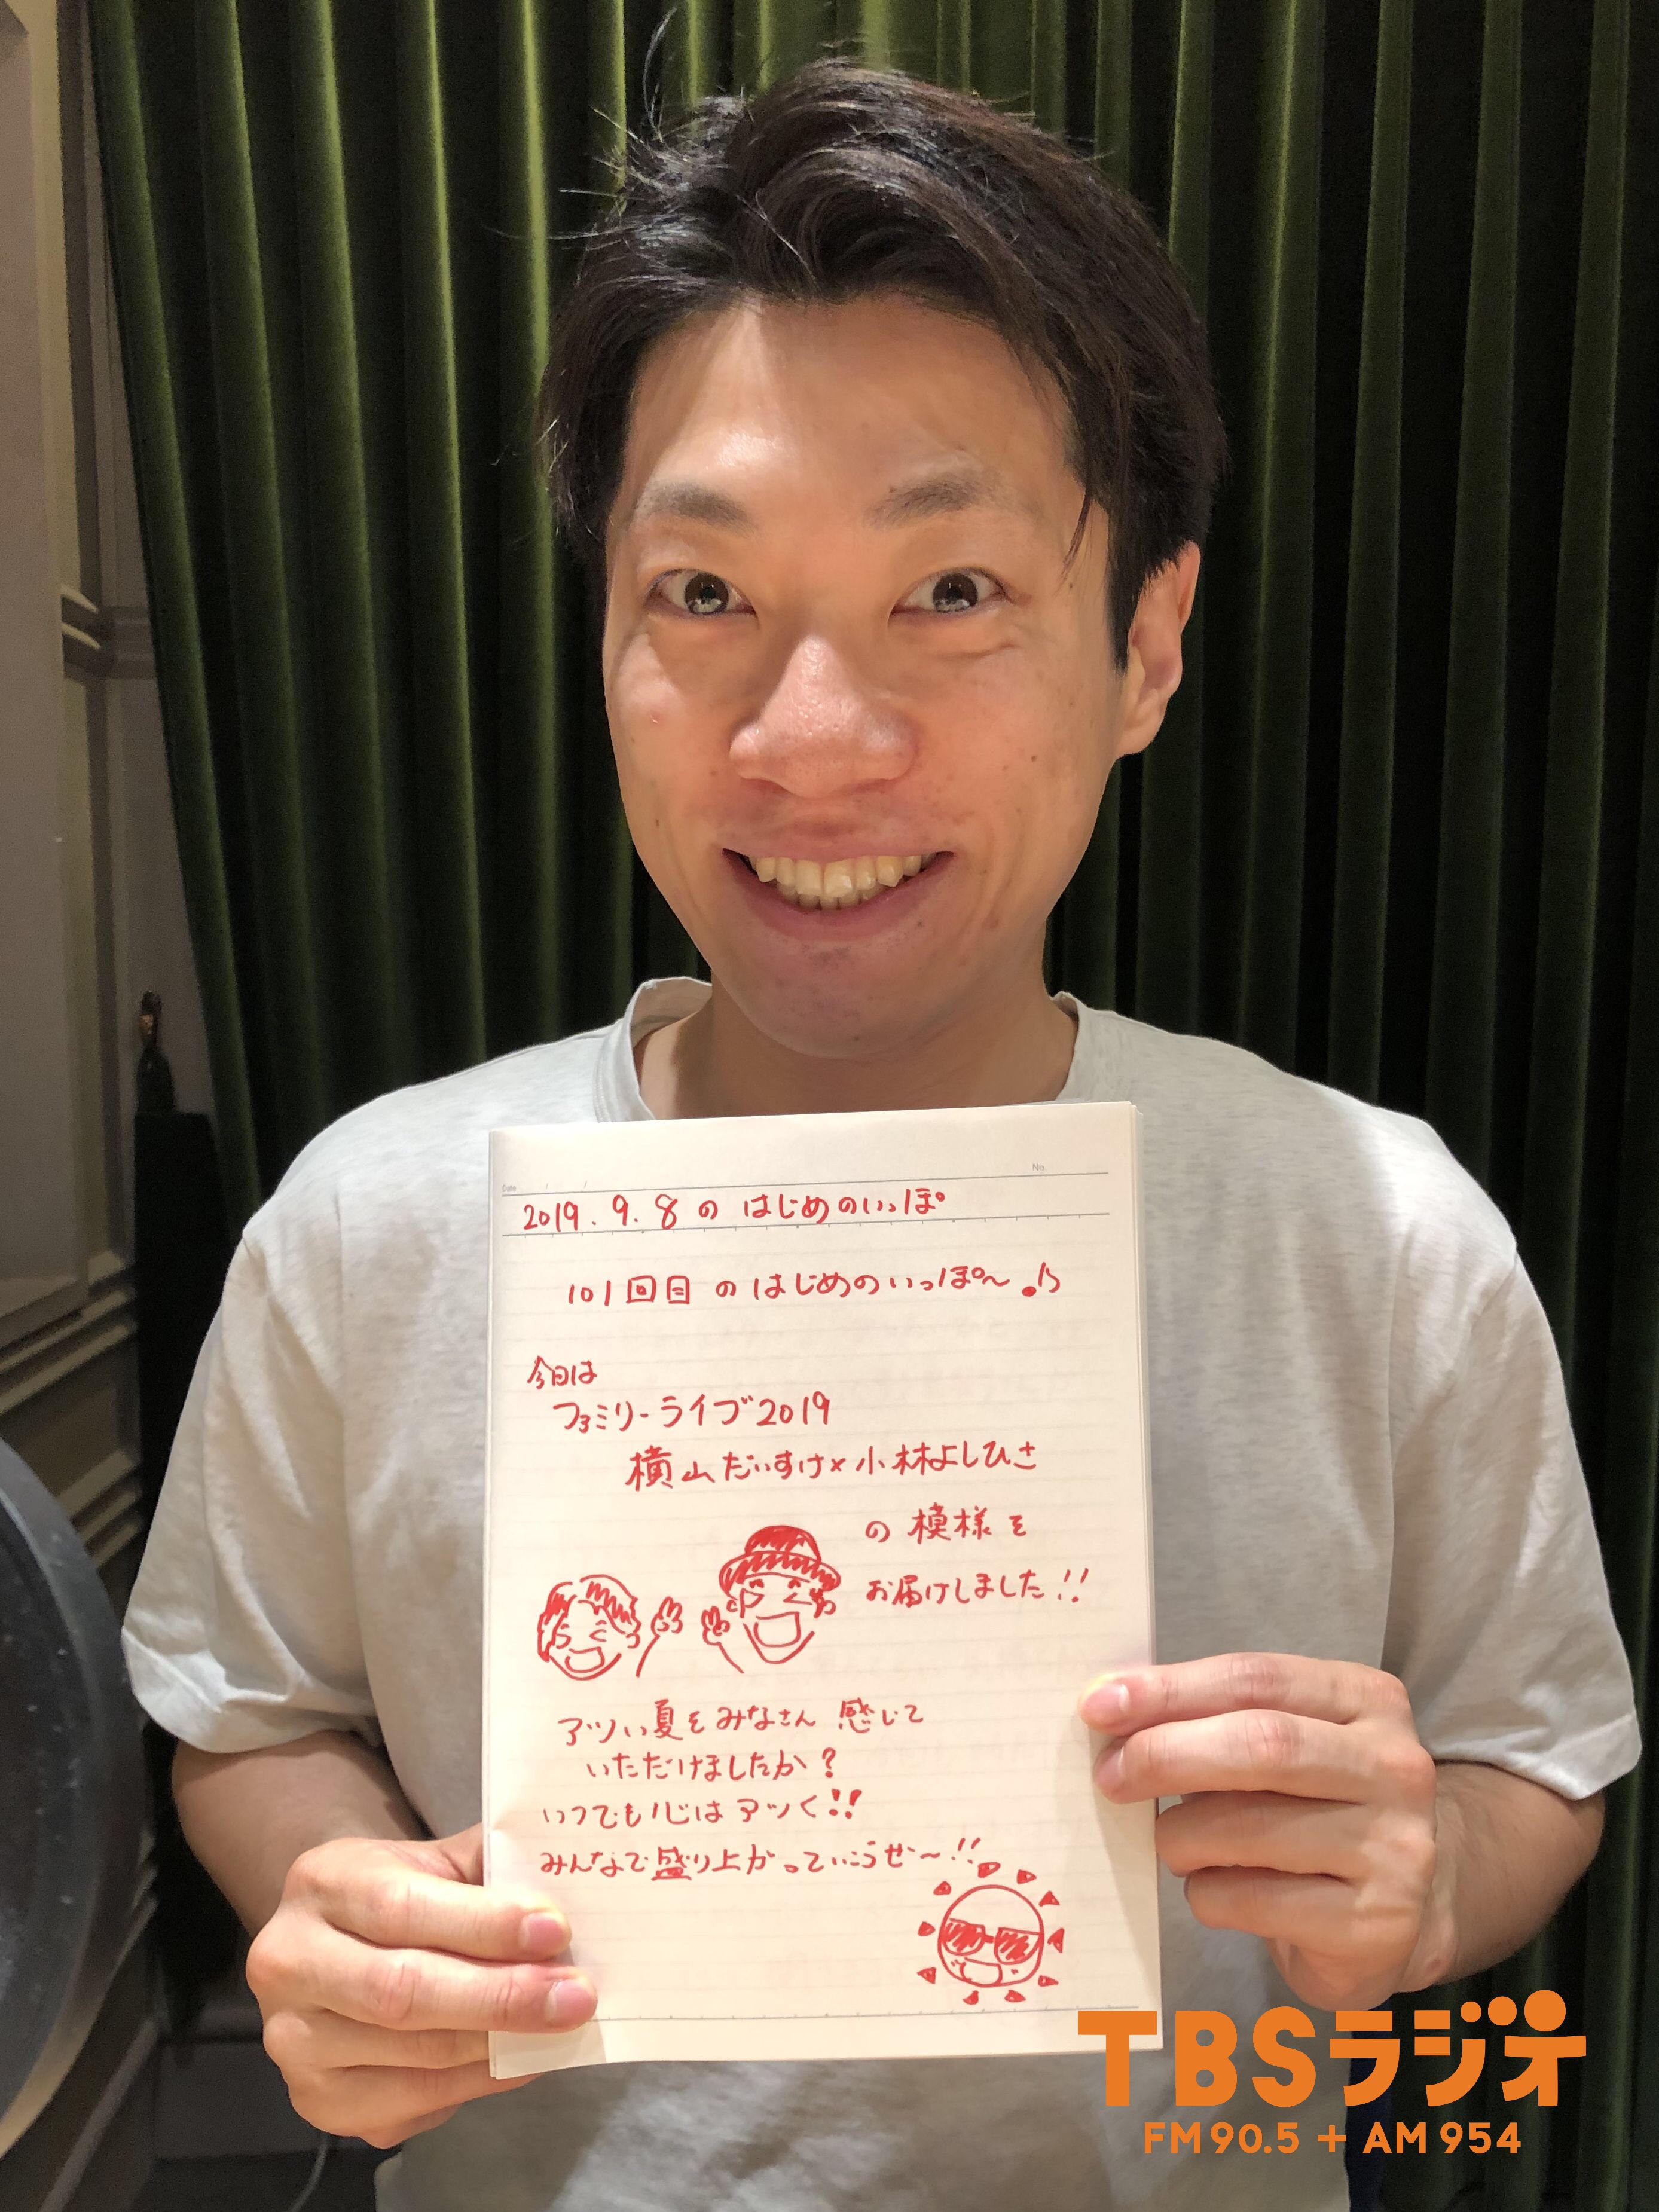 Date / /
No.
2019.9.8 の はじめのいっぽ
101回目 の はじめのいっぽ〜♪
今日は
ファミリーライブ2019
横山だいすけ×小林よしひさ
の 模様を
お届けしました!!
アツい夏をみなさん 感じて
いただけましたか?
いつでも心はアツく!!
みんなで盛り上がっていこうぜ〜!!
TBSラジオ
FM 90.5 + AM 954